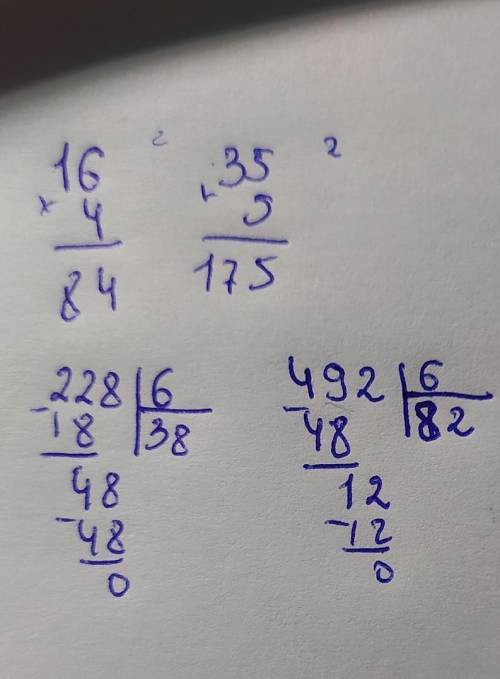 2 2
16 35
× 4 × 5
84 175
-228 6
18 38
48
-48
0
-492 6
48 82
12
-12
0